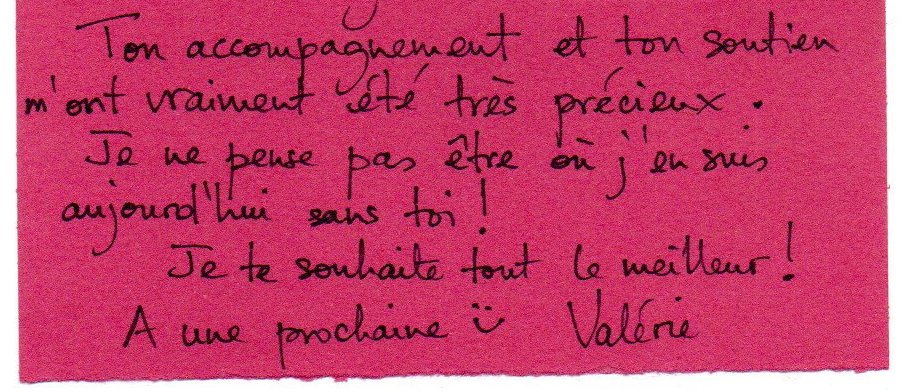 Ton accompagnement et ton soutien
m'ont vraiment été très précieux.
Je ne pense pas être où j'en suis
aujourd'hui sans toi !
Je te souhaite tout le meilleur !
A une prochaine Valérie